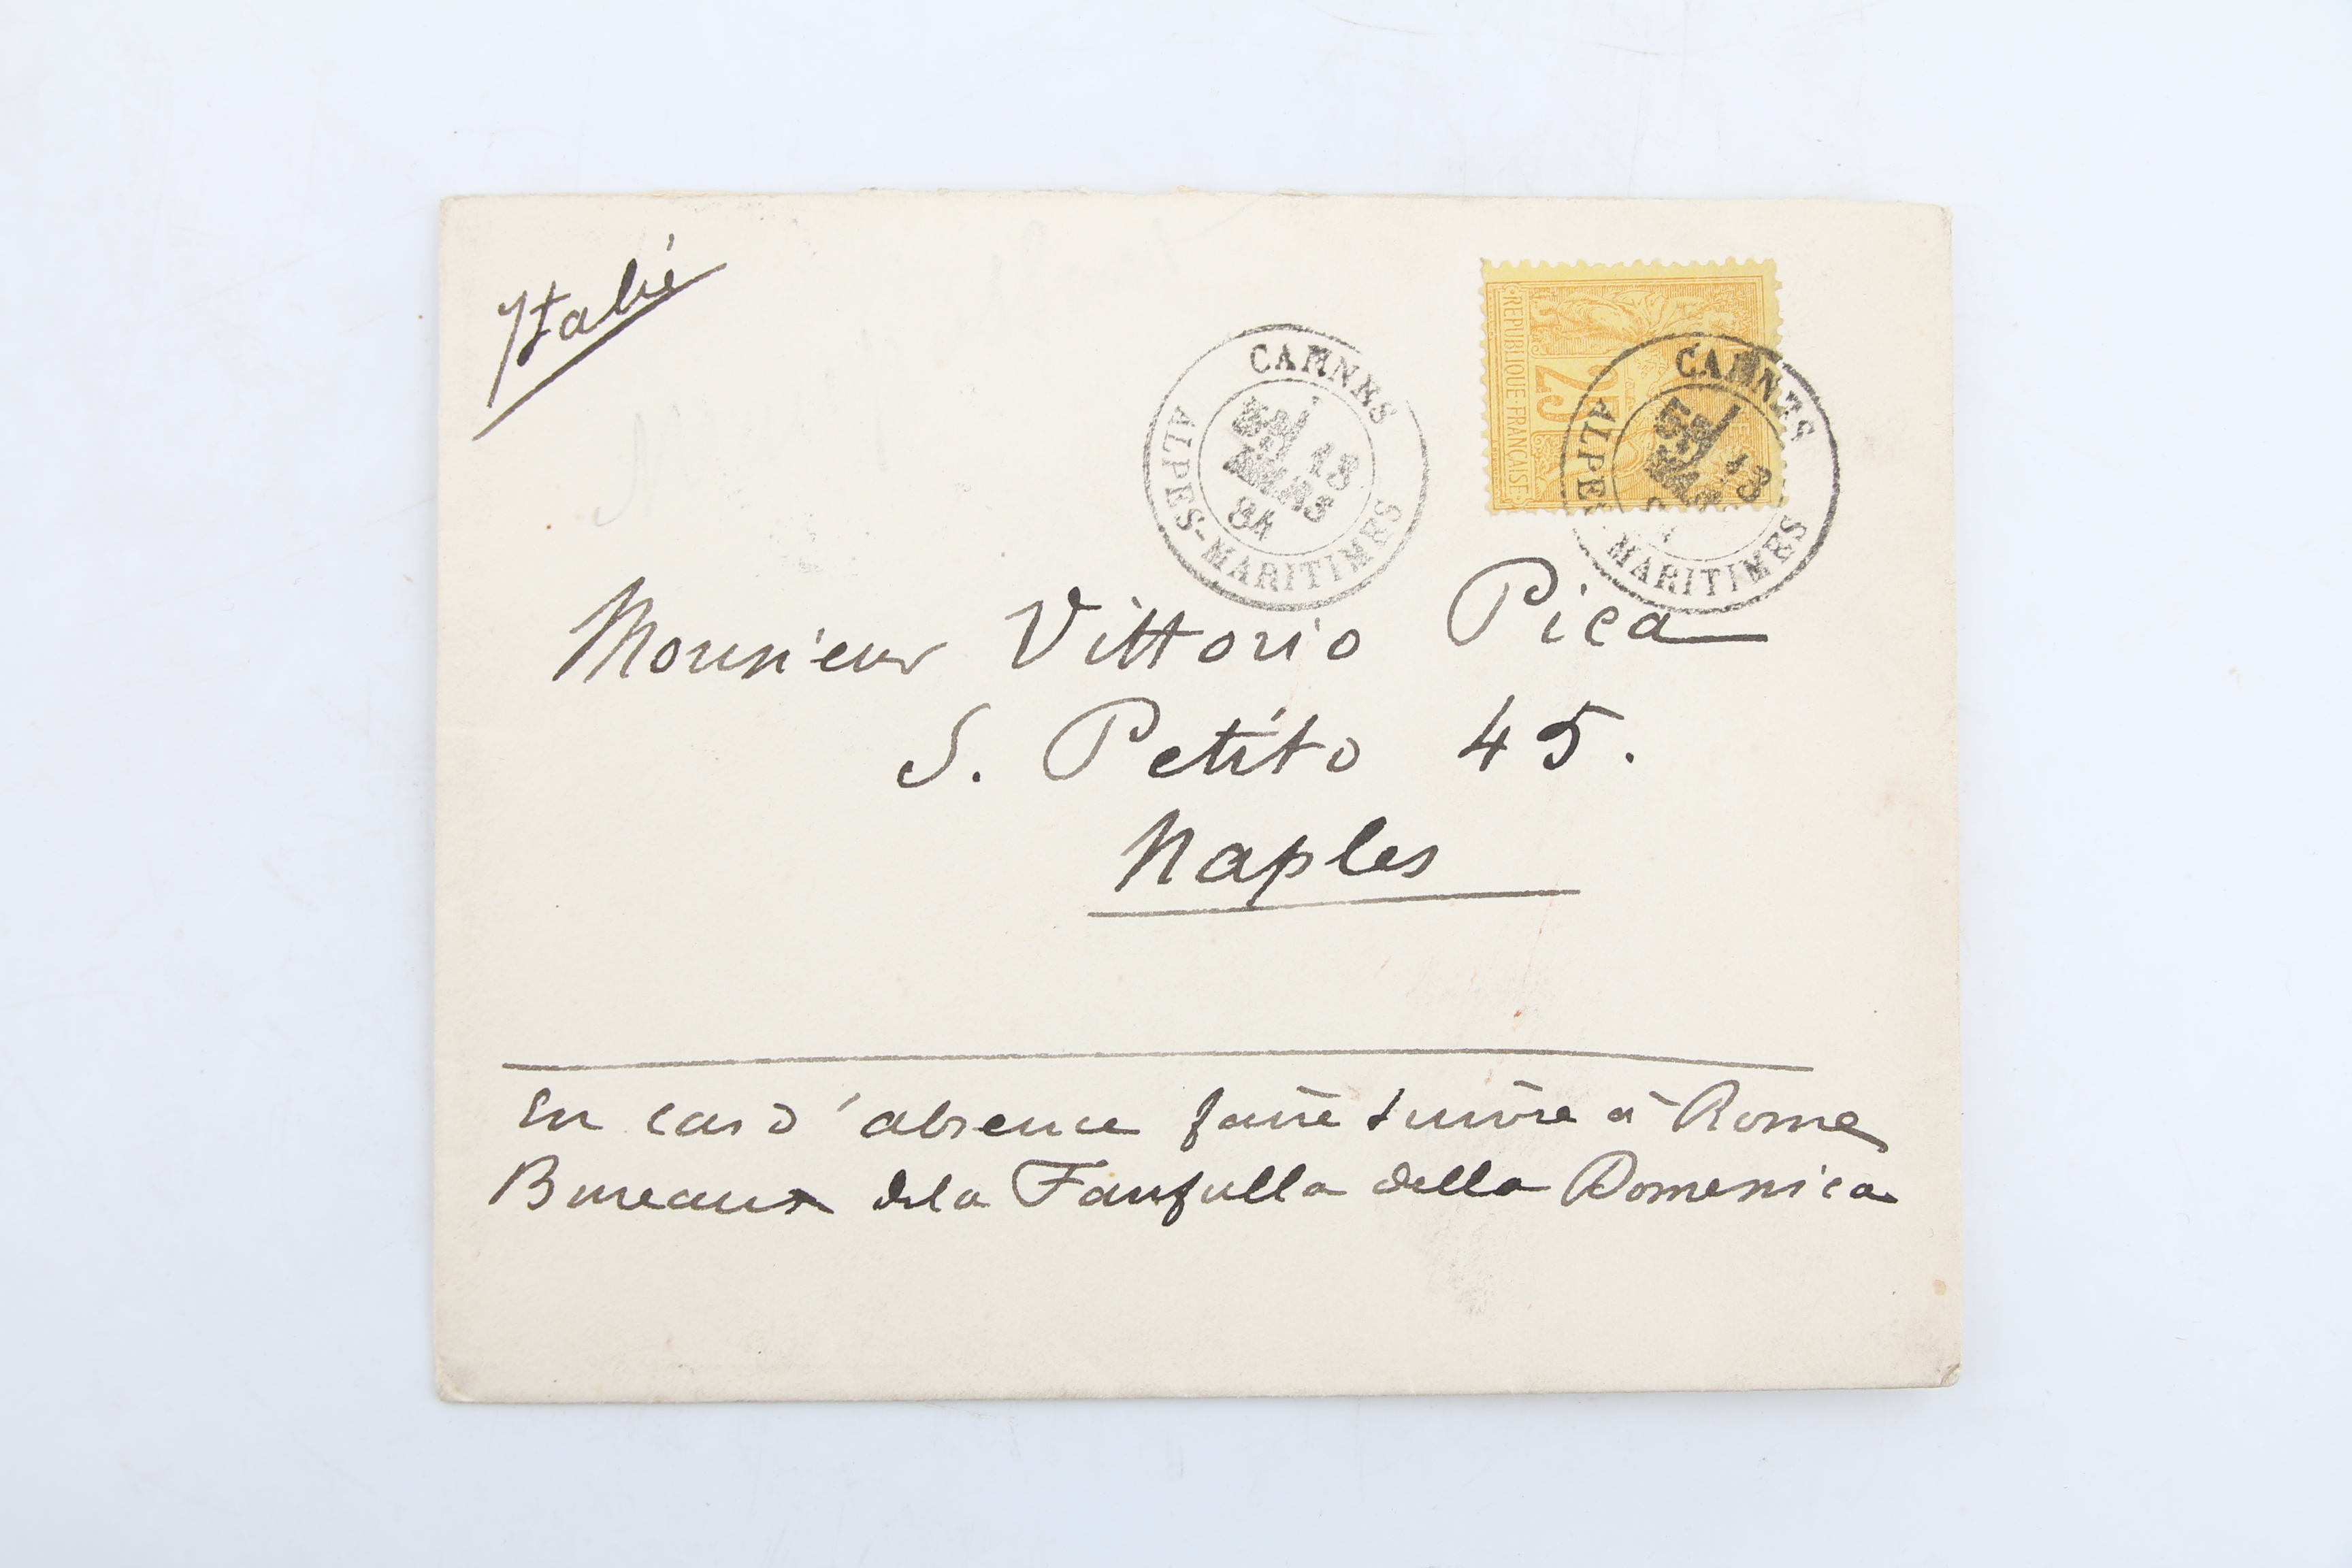 Italie
CANNES
5E/ 13
MARS
84
ALPES-MARITIMES
REPUBLIQUE FRANCAISE
25
CANNES
5E/ 13
ALPES-MARITIMES
Monsieur Vittorio Pica
S. Petito 45.
Naples
En cas d'absence faire suivre à Rome
Bureaux de la Fanfulla della Domenica